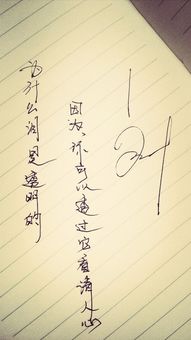 为什么泪是透明的
因为,你可以透过它看清人心